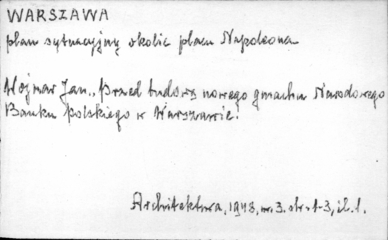 WARSZAWA
plan sytuacyjny okolic placu Napoleona
Wójnar Jan., Przed budową nowego gmachu Narodowego
Banku Polskiego w Warszawie.
Architektura, 1948, nr. 3. str. 1-3, il. 1.